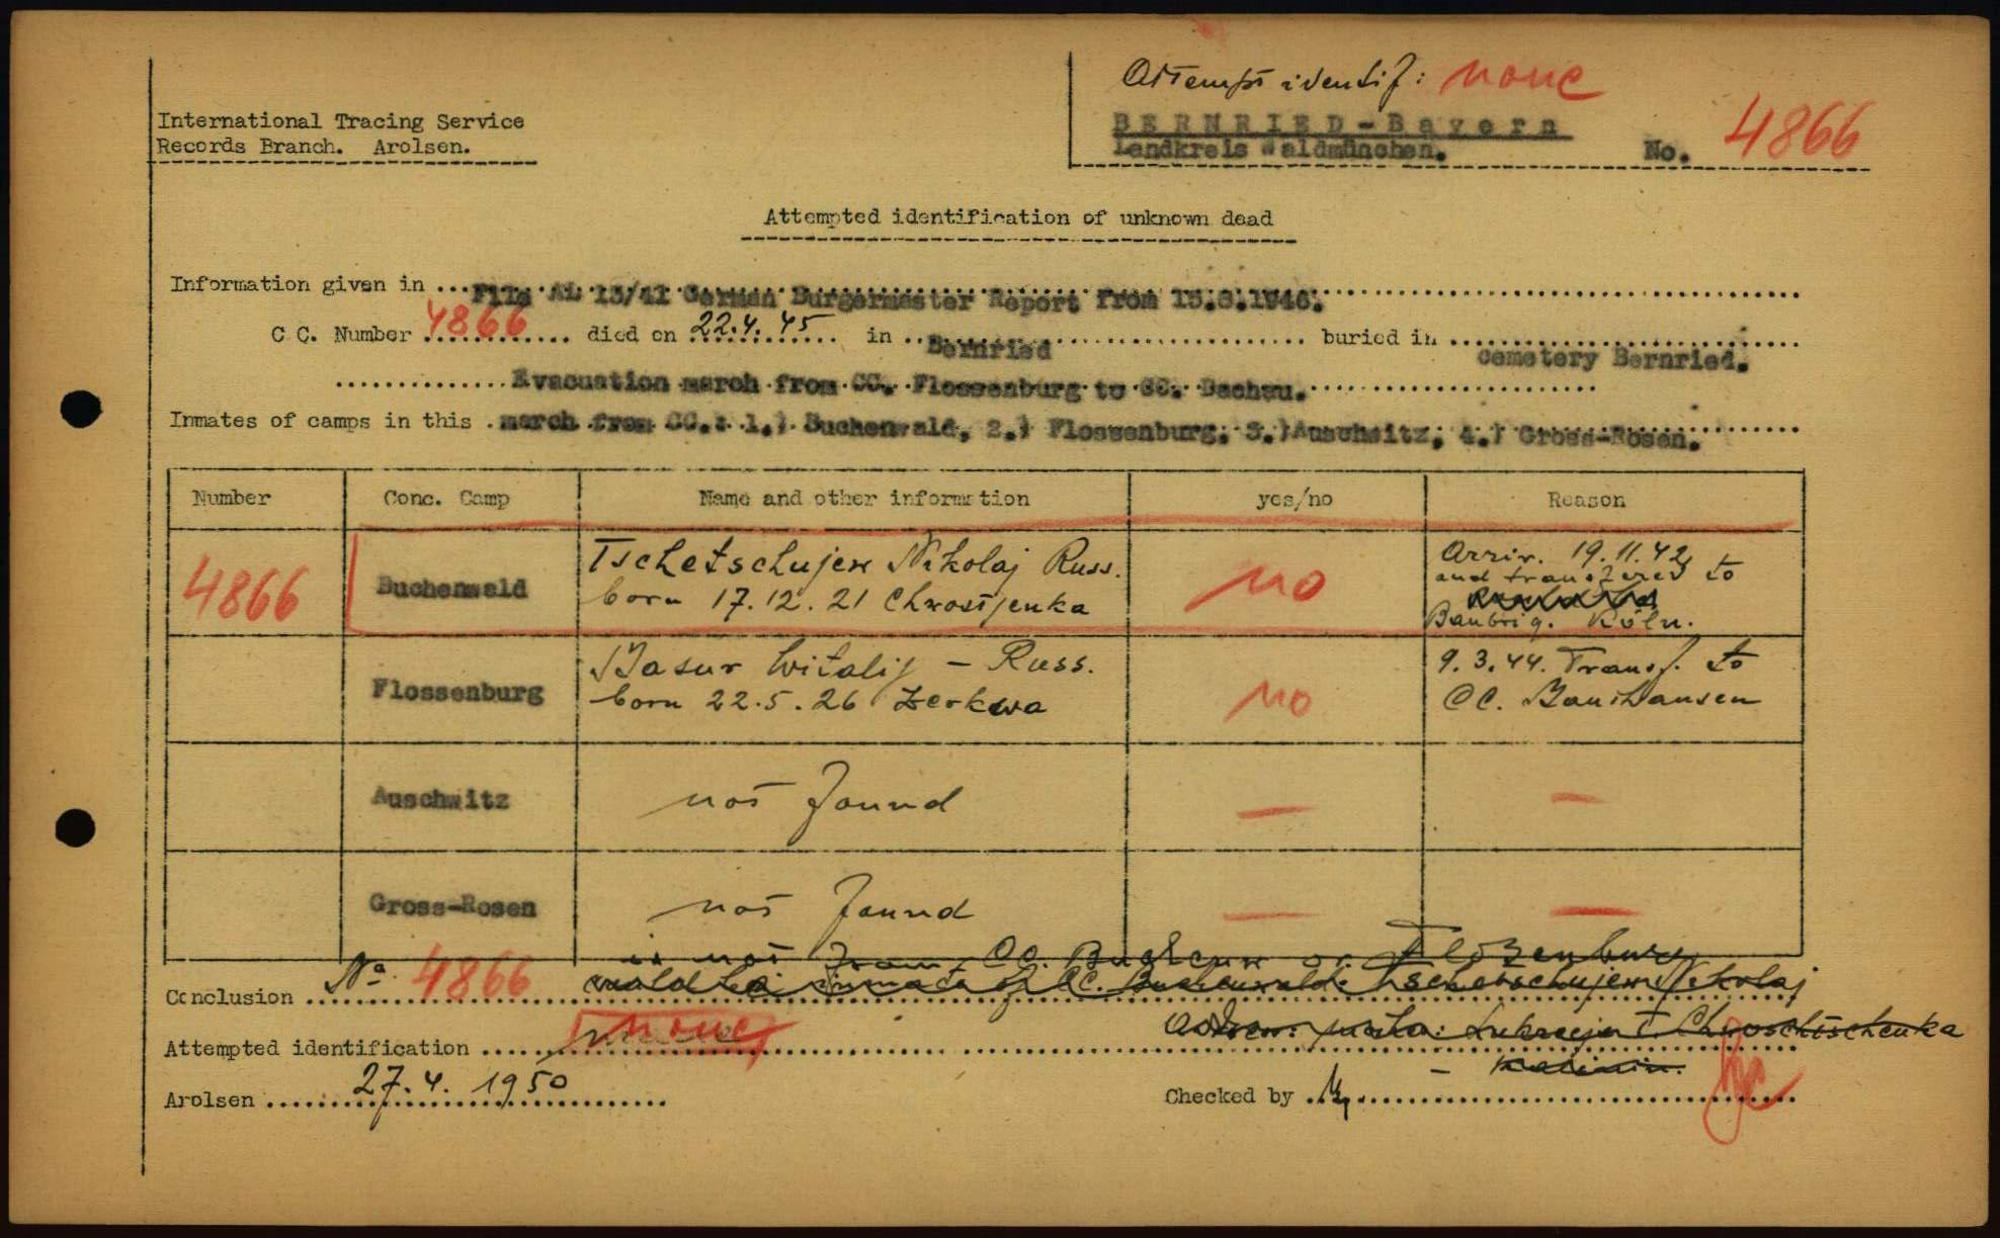 Attempt identif: none
International Tracing Service
Records Branch. Arolsen.
BERNRIED-Bayern
Landkreis Waldmünchen.
No. 4866
Attempted identification of unknown dead
Information given in ... File AL 13/41 German Burgermaster Report from 1946.
C C. Number 4866 died on 22.4.45 in Bernried buried in cemetery Bernried.
Evacuation march from CC. Flossenburg to CC. Dachau.
Inmates of camps in this march from CC.: 1.) Buchenwald, 2.) Flossenburg, 3.) Auschwitz, 4.) Gross-Rosen.
Number Conc. Camp Name and other information yes/no Reason
4866 Buchenwald Tschetschujew Nikolaj Russ. no Arriv. 19.11.42
born 17.12.21 Chwostjenka and transfered to
Baubrig. Köln.
Flossenburg Masur Witalij - Russ. no 9.3.44. Transf. to
born 22.5.26 Zerkwa CC. Mauthausen
Auschwitz not found — —
Gross-Rosen not found — —
is not from CC. Buchen or Floßenburg
Conclusion No 4866 wald inmate of CC. Buchenwald: Tschetschujew Nikolaj
Lukreija T. Chwostischenka
Attempted identification none
Kalinin.
Arolsen 27.4.1950 Checked by